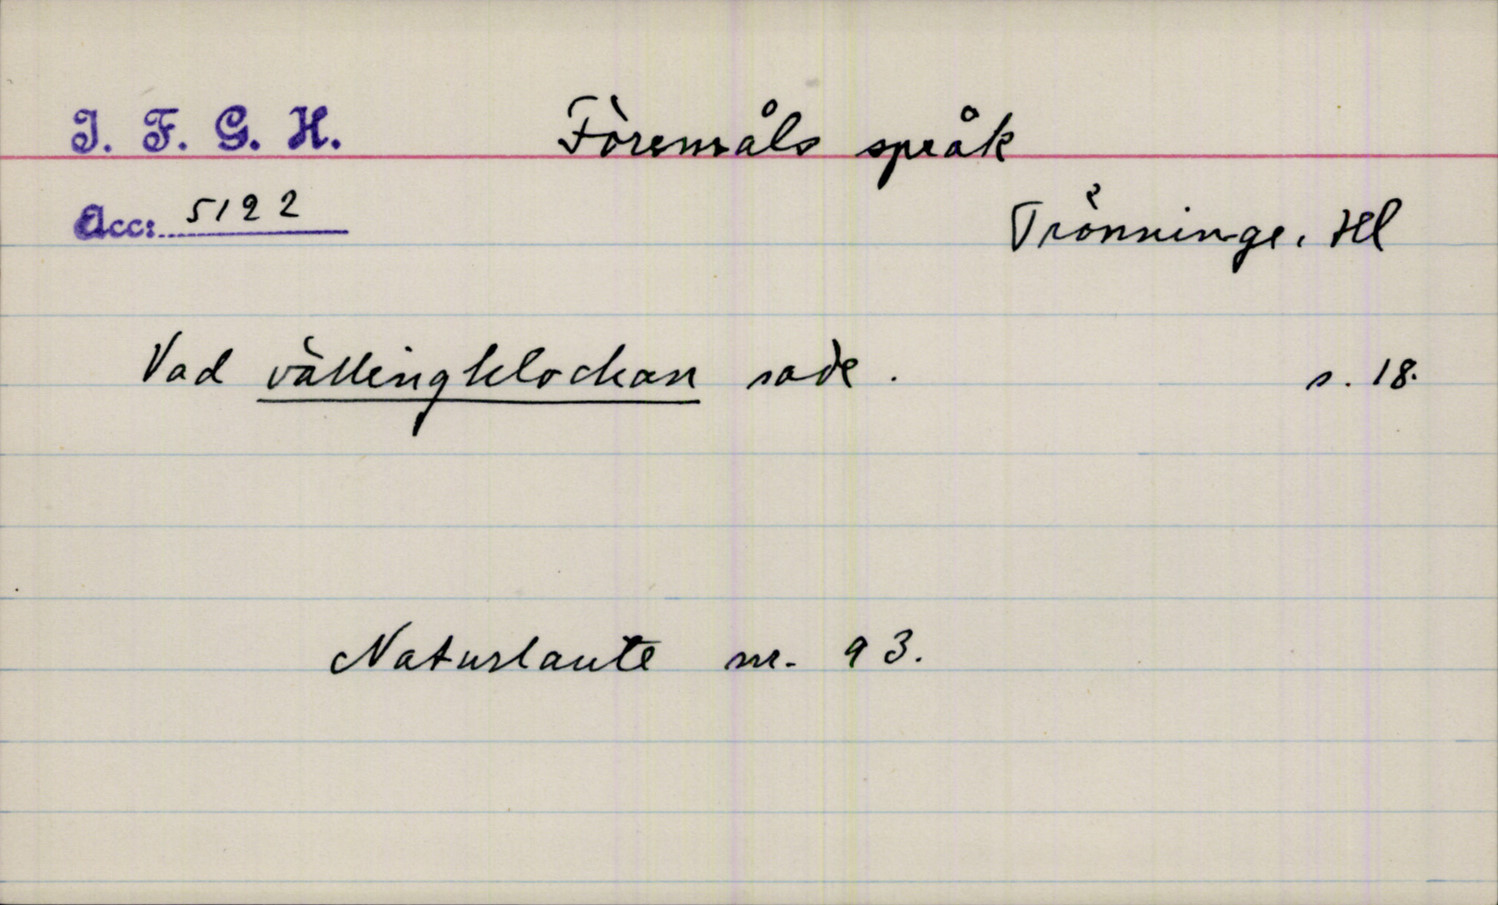 I. F. G. H. Föremåls språk
Acc: 5122 Trönninge, Hl
Vad vällingklockan sade. s. 18.
Naturlaute nr. 93.